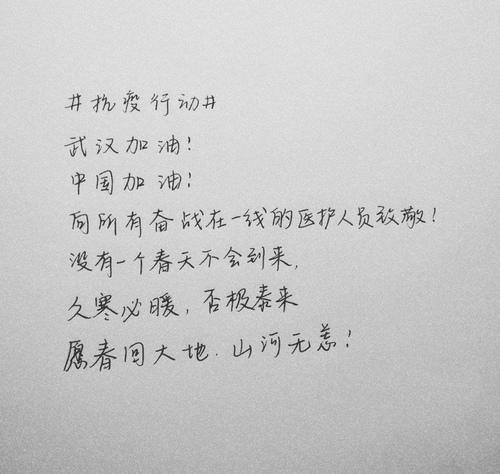 #抗疫行动#
武汉加油！
中国加油！
向所有奋战在一线的医护人员致敬！
没有一个春天不会到来，
久寒必暖，否极泰来
愿春回大地．山河无恙！